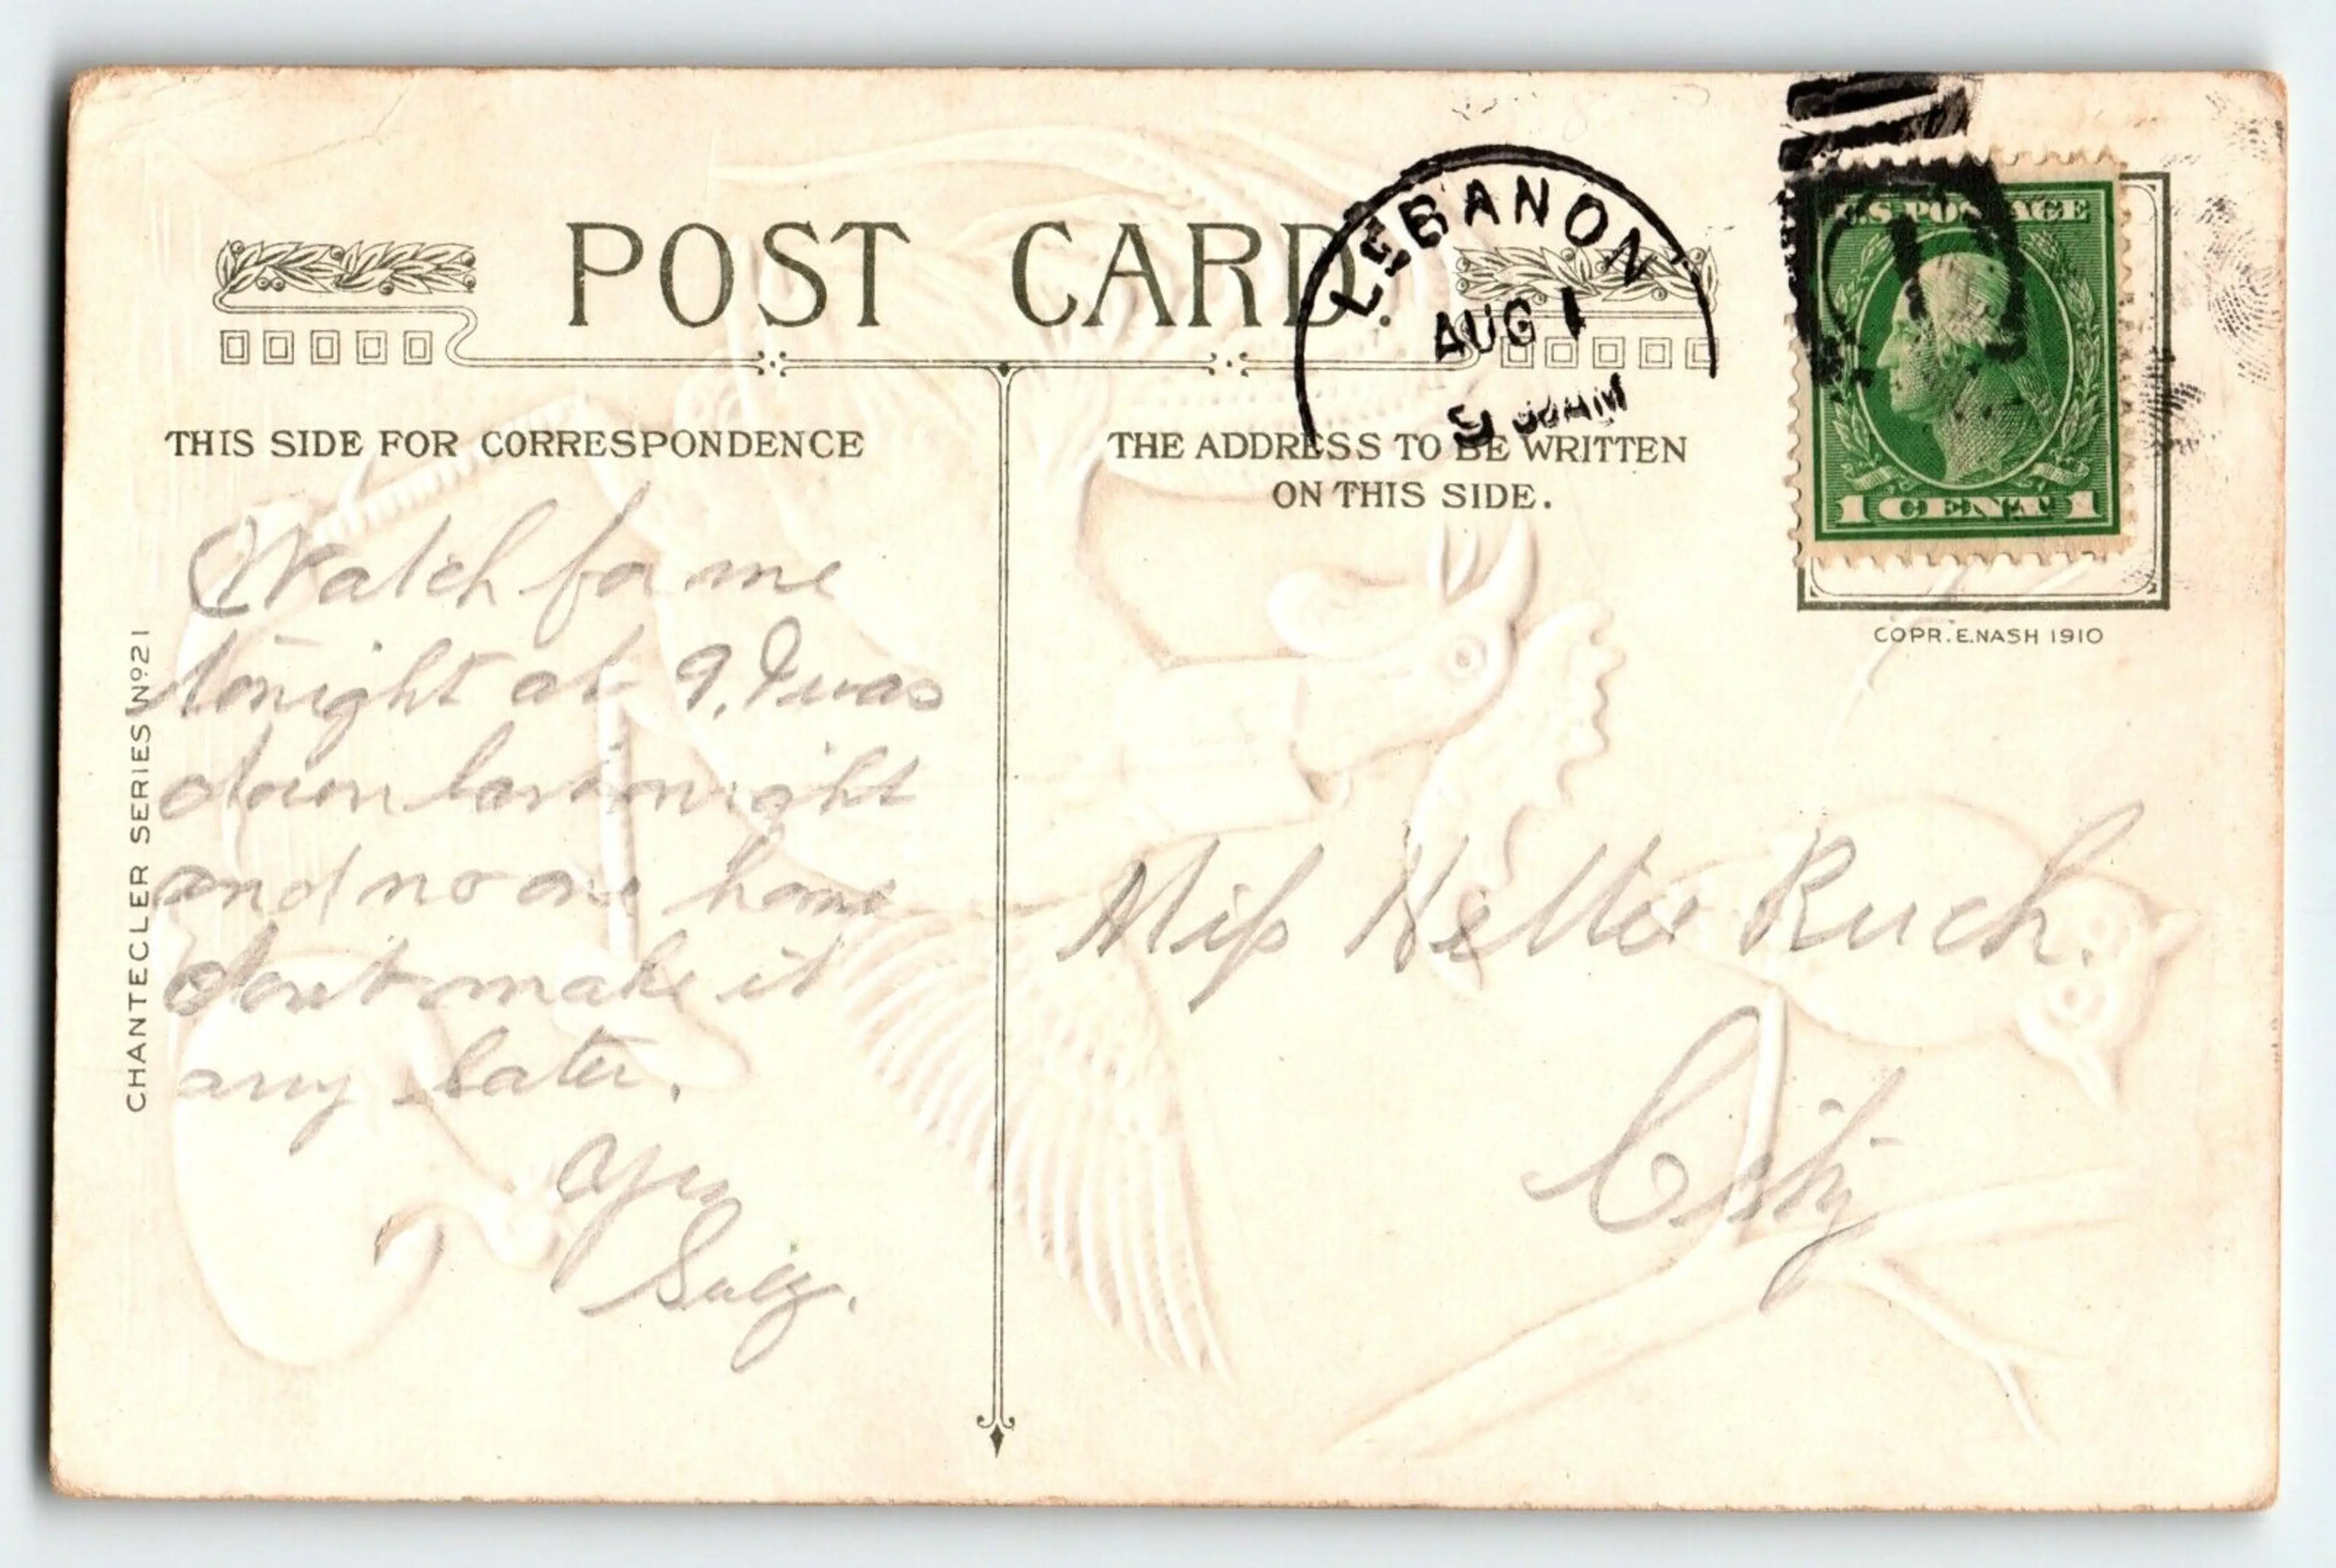 POST CARD.
LEBANON
AUG 1
9 30 AM
U.S. POSTAGE
1 CENT 1
THIS SIDE FOR CORRESPONDENCE
THE ADDRESS TO BE WRITTEN
ON THIS SIDE.
COPR. E. NASH 1910
CHANTECLER SERIES No 21
Watch for me
tonight at 9. I was
down last night
and no one home
don't make it
any later.
Miss Nellie Ruch.
City